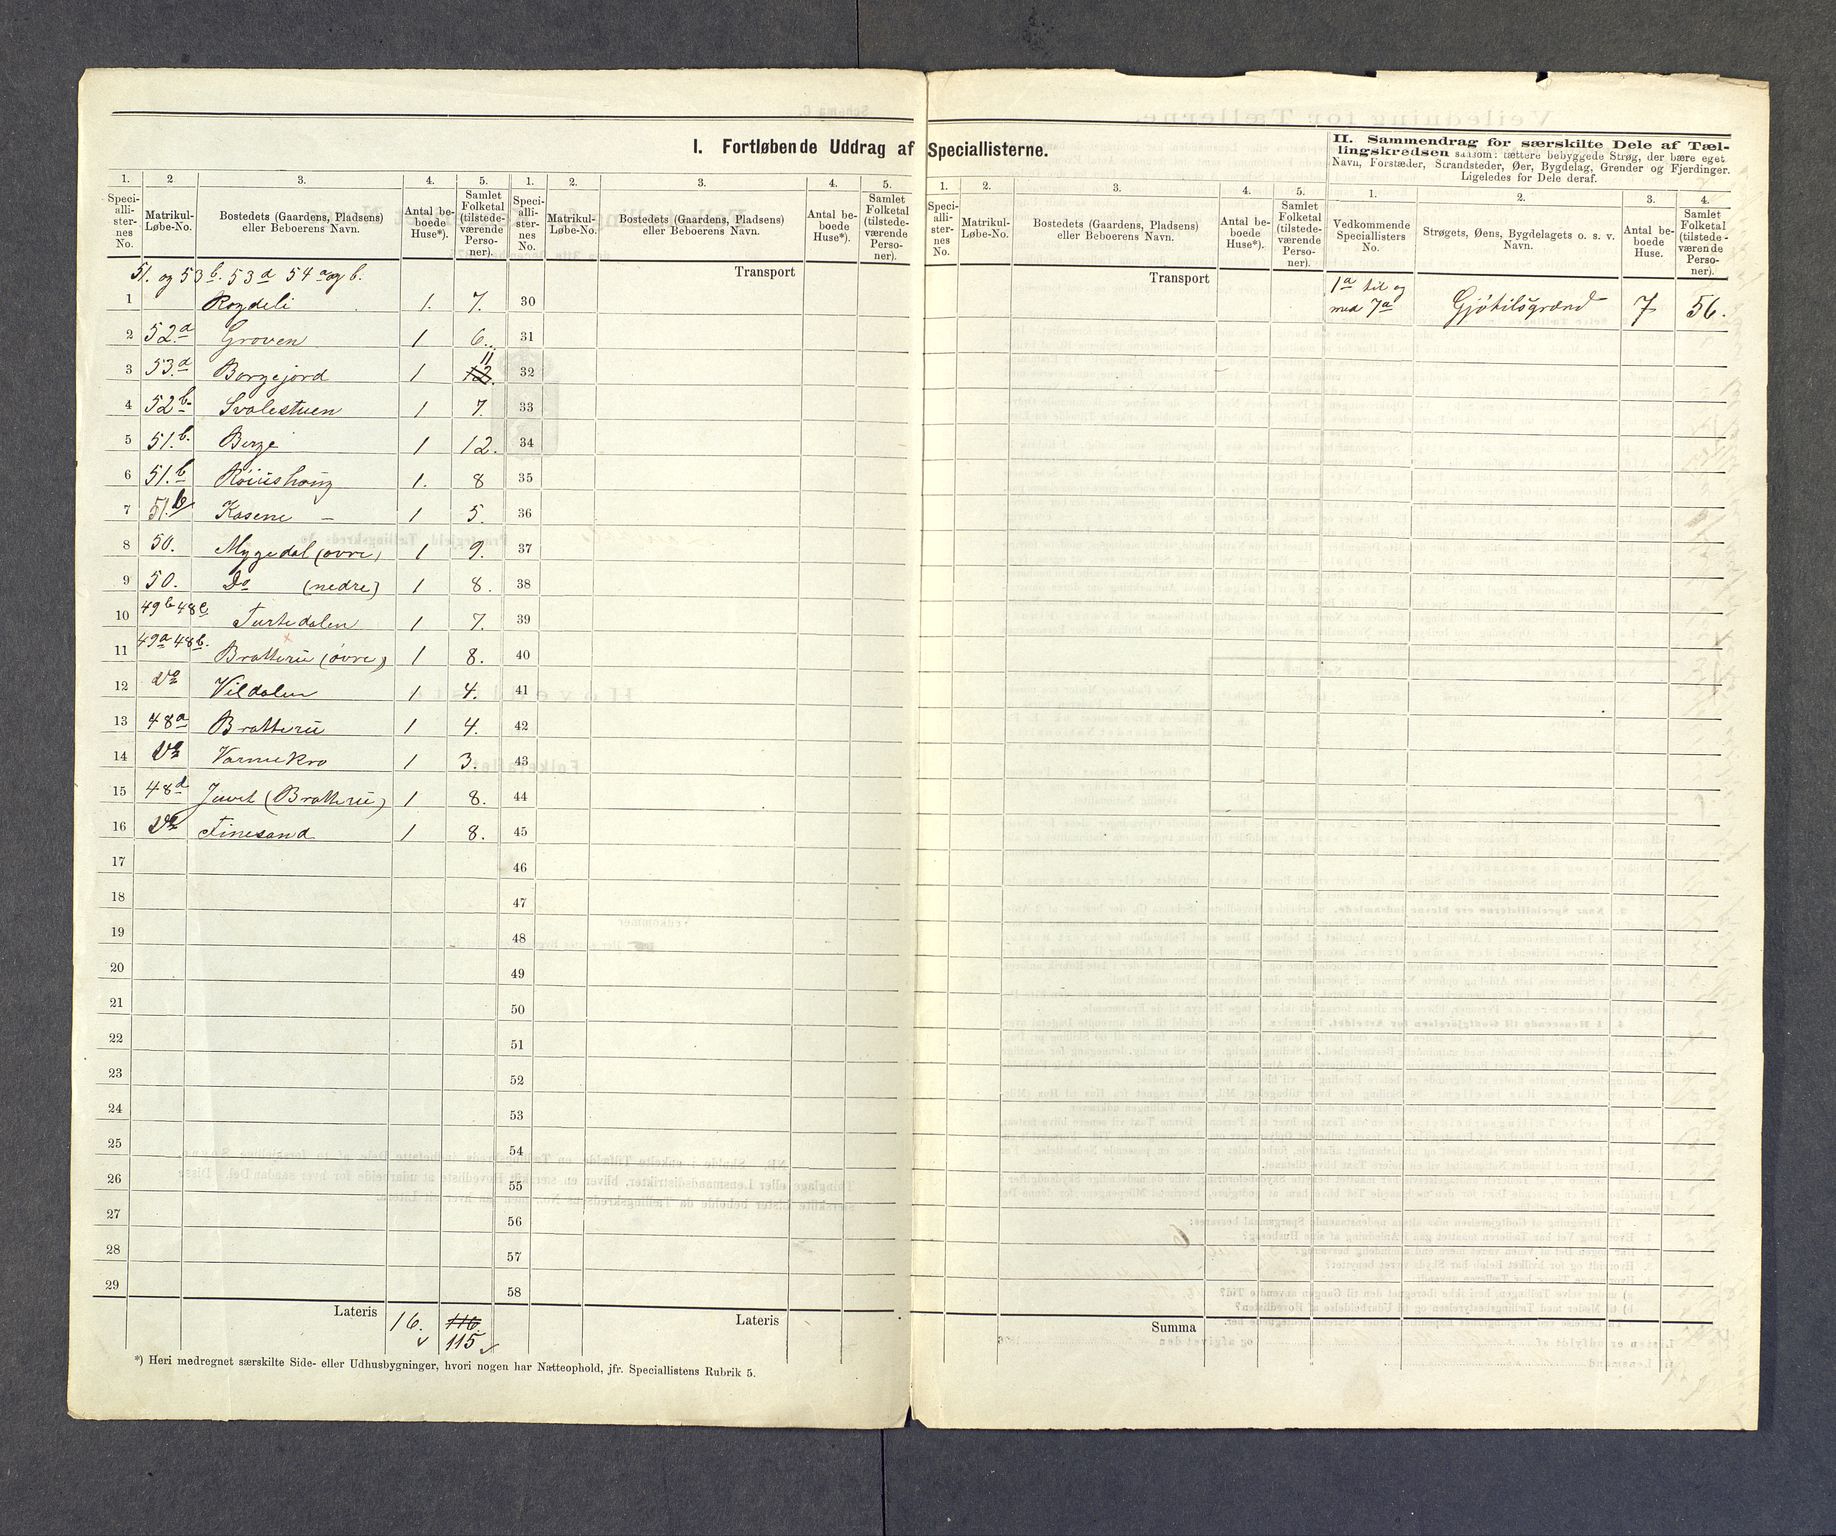 I. Fortløbende Uddrag af Speciallisterne.
II. Sammendrag for særskilte Dele af Tæl-
lingskredsen saasom: tættere bebyggede Strøg, der bære eget
Navn, Forstæder, Strandsteder, Øer, Bygdelag, Grender og Fjerdinger.
Ligeledes for Dele deraf.
1. 2 3. 4. 5. 1. 2. 3. 4. 5. 1. 2. 3. 4. 5. 1. 2. 3. 4.
Speci-
alli-
ster-
nes
No.
Matrikul-
Løbe-No.
Bostedets (Gaardens, Pladsens)
eller Beboerens Navn.
Antal be-
boede
Huse*).
Samlet
Folketal
(tilstede-
værende
Perso-
ner).
Speci-
alli-
ster-
nes
No.
Matrikul-
Løbe-No.
Bostedets (Gaardens, Pladsens)
eller Beboerens Navn.
Antal be-
boede
Huse*).
Samlet
Folketal
(tilstede-
værende
Perso-
ner).
Speci-
alli-
ster-
nes
No.
Matrikul-
Løbe-No.
Bostedets (Gaardens, Pladsens)
eller Beboerens Navn.
Antal be-
boede
Huse*).
Samlet
Folketal
(tilstede-
værende
Perso-
ner).
Vedkommende
Speciallisters
No.
Strøgets, Øens, Bygdelagets o. s. v.
Navn.
Antal be-
boede
Huse.
Samlet
Folketal
(tilstede-
værende
Perso-
ner).
51. og 53 b. 53 d 54 a og b. Transport Transport
1 Rogdeli 1. 7. 30
1a til og
med 7a Gjøtilsgrænd 7 56.
2 52.a Groven 1 6. 31
3 53.a Borgejord 1 12. 11 32
4 52 b. Svalestuen 1 7. 33
5 51.b. Berge 1 12. 34
6 51.b 1. 8 35
7 51.b Kasene – 1 5. 36
8 50. Mygedal (øvre) 1 9. 37
9 50. Do (nedre) 1 8. 38
10 49b 48c Turtedalen 1 7. 39
11 49a 48b. Bratterui (øvre) 1 8. 40
12 do Vildalen 1 4. 41
13 48a Bratterui 1 4. 42
14 Do Varmekro 1 3. 43
15 48d Juvet (Bratterui) 1 8. 44
16 Do Finesand 1 8. 45
17 46
18 47
19 48
20 49
21 50
22 51
23 52
24 53
25 54
26 55
27 56
28 57
29 58
Lateris 16. 116. Lateris Summa
115
*) Heri medregnet særskilte Side- eller Udhusbygninger, hvori nogen har Natteophold, jfr. Speciallistens Rubrik 5.